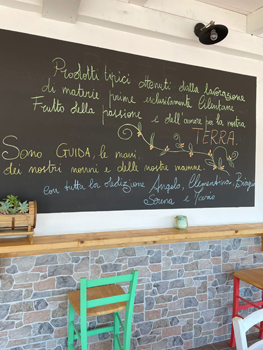 Prodotti tipici ottenuti dalla lavorazione
di materie prime esclusivamente Cilentane
Frutto della passione e dell'amore per la nostra
TERRA.
Sono GUIDA, le mani
dei nostri nonni e delle nostre mamme.
con tutta la dedizione Angelo, Clementina, Biagio
Serena e